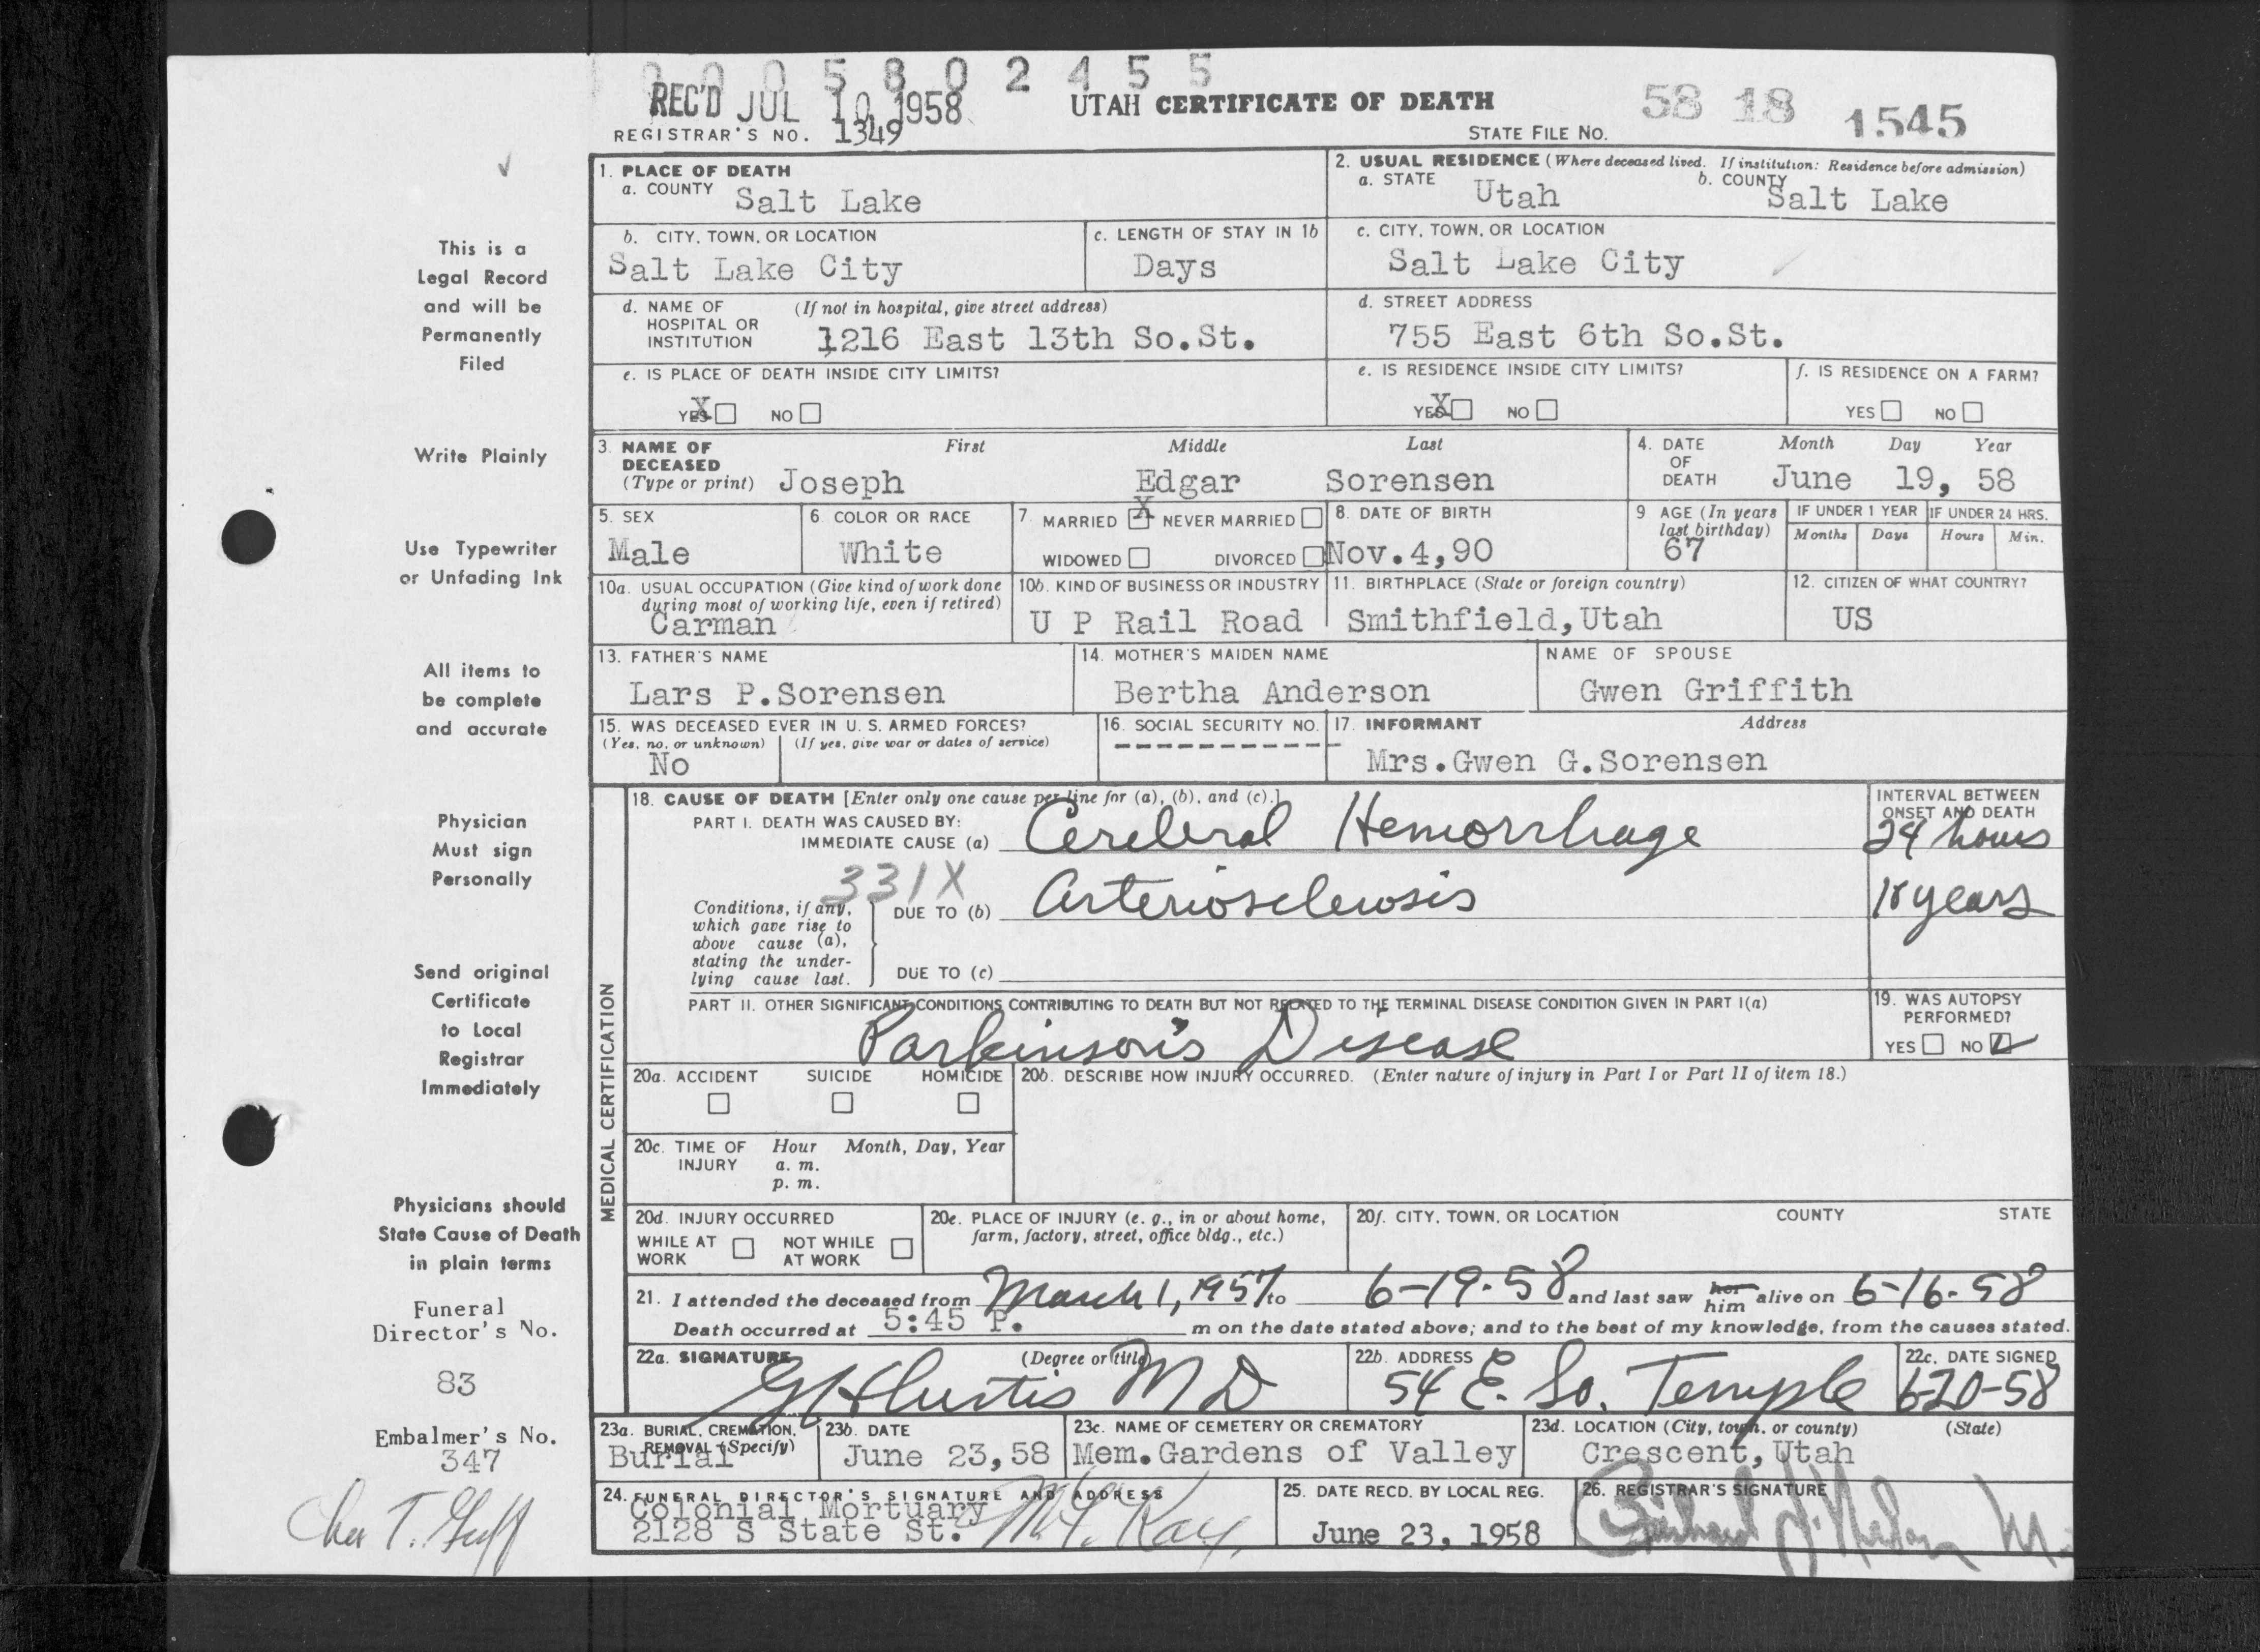 0 0 0 5 8 0 2 4 5 5
REC'D JUL 10 1958 UTAH CERTIFICATE OF DEATH 58 18 1545
REGISTRAR'S NO. 1349 STATE FILE NO.
This is a
Legal Record
and will be
Permanently
Filed
Write Plainly
Use Typewriter
or Unfading Ink
All items to
be complete
and accurate
Physician
Must sign
Personally
Send original
Certificate
to Local
Registrar
Immediately
Physicians should
State Cause of Death
in plain terms
Funeral
Director's No.
83
Embalmer's No.
347
1. PLACE OF DEATH
a. COUNTY Salt Lake
2. USUAL RESIDENCE (Where deceased lived. If institution: Residence before admission)
a. STATE Utah b. COUNTY Salt Lake
b. CITY, TOWN, OR LOCATION
Salt Lake City
c. LENGTH OF STAY IN 1b
Days
c. CITY, TOWN, OR LOCATION
Salt Lake City
d. NAME OF (If not in hospital, give street address)
HOSPITAL OR
INSTITUTION 1216 East 13th So.St.
d. STREET ADDRESS
755 East 6th So.St.
e. IS PLACE OF DEATH INSIDE CITY LIMITS?
YES X NO
e. IS RESIDENCE INSIDE CITY LIMITS?
YES X NO
f. IS RESIDENCE ON A FARM?
YES NO
3. NAME OF First Middle Last
DECEASED
(Type or print) Joseph Edgar Sorensen
4. DATE Month Day Year
OF
DEATH June 19, 58
5. SEX
Male
6. COLOR OR RACE
White
7. MARRIED X NEVER MARRIED
WIDOWED DIVORCED
8. DATE OF BIRTH
Nov.4,90
9 AGE (In years
last birthday)
67
IF UNDER 1 YEAR IF UNDER 24 HRS.
Months Days Hours Min.
10a. USUAL OCCUPATION (Give kind of work done
during most of working life, even if retired)
Carman
10b. KIND OF BUSINESS OR INDUSTRY
U P Rail Road
11. BIRTHPLACE (State or foreign country)
Smithfield,Utah
12. CITIZEN OF WHAT COUNTRY?
US
13. FATHER'S NAME
Lars P.Sorensen
14. MOTHER'S MAIDEN NAME
Bertha Anderson
NAME OF SPOUSE
Gwen Griffith
15. WAS DECEASED EVER IN U. S. ARMED FORCES?
(Yes, no, or unknown) (If yes, give war or dates of service)
No
16. SOCIAL SECURITY NO.
-----------
17. INFORMANT Address
Mrs.Gwen G.Sorensen
MEDICAL CERTIFICATION
18. CAUSE OF DEATH [Enter only one cause per line for (a), (b), and (c).]
PART I. DEATH WAS CAUSED BY:
IMMEDIATE CAUSE (a) Cerebral Hemorrhage
INTERVAL BETWEEN
ONSET AND DEATH
24 hours
331X
Conditions, if any,
which gave rise to
above cause (a),
stating the under-
lying cause last.
DUE TO (b) Arteriosclerosis years
DUE TO (c)
PART II. OTHER SIGNIFICANT CONDITIONS CONTRIBUTING TO DEATH BUT NOT RELATED TO THE TERMINAL DISEASE CONDITION GIVEN IN PART I(a)
Parkinson's Disease
19. WAS AUTOPSY
PERFORMED?
YES NO
20a. ACCIDENT SUICIDE HOMICIDE
20b. DESCRIBE HOW INJURY OCCURRED. (Enter nature of injury in Part I or Part II of item 18.)
20c. TIME OF Hour Month, Day, Year
INJURY a. m.
p. m.
20d. INJURY OCCURRED
WHILE AT NOT WHILE
WORK AT WORK
20e. PLACE OF INJURY (e. g., in or about home,
farm, factory, street, office bldg., etc.)
20f. CITY, TOWN, OR LOCATION COUNTY STATE
21. I attended the deceased from March 1, 1957 to 6-19-58 and last saw her him alive on 6-16-58
Death occurred at 5:45 P. m on the date stated above; and to the best of my knowledge, from the causes stated.
22a. SIGNATURE (Degree or title)
M D
22b. ADDRESS
54 E. So. Temple
22c. DATE SIGNED
6-20-58
23a. BURIAL, CREMATION,
REMOVAL (Specify)
Burial
23b. DATE
June 23,58
23c. NAME OF CEMETERY OR CREMATORY
Mem.Gardens of Valley
23d. LOCATION (City, town, or county) (State)
Crescent,Utah
24. FUNERAL DIRECTOR'S SIGNATURE AND ADDRESS
Colonial Mortuary
2128 S State St.
25. DATE RECD. BY LOCAL REG.
June 23, 1958
26. REGISTRAR'S SIGNATURE